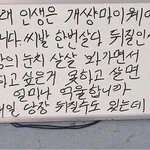 래 인생은 개썅마이웨이
니다. 씨발 한번살다 뒤질인생
남의 눈치 살살 봐가면서
하고 싶은거 못하고 살면
얼마나 억울합니까
내일 당장 뒤질수도 있는데